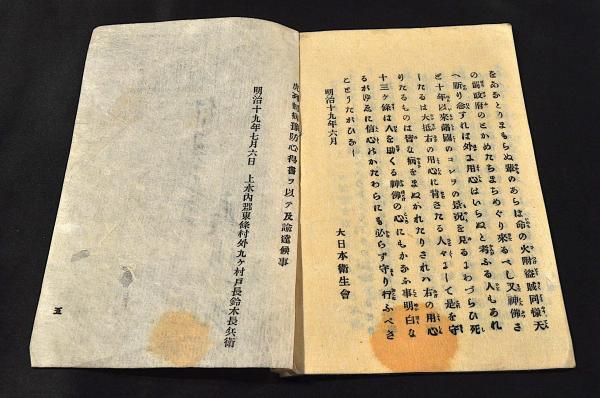 をあなどりまもらぬ輩のあらは命の火附盜賊同様天
の罰政府のとがめたちまちめぐり來るべし又神佛さ
へ祈り念ずれば外よ用心はいらぬと考ふる人もあれ
ど十年以來諸國のコレラの景況を見るよわづらひ死
ーたるは大抵右の用心に背きたる人々よーて是を守
りたるものは皆な病をまぬかれたりされハ右の用心
十三ヶ條は人を助くる神佛の心にもかなふ事明白な
るがゆゑに信心のかたわらにも必らず守り行ふべき
ことうたれひなー
明治十九年六月
大日本衞生會
虎列剌病豫防心得書ヲ以テ及諭達候事
明治十九年七月六日 上水内郡東條村外九ヶ村戸長鈴木長兵衞
五